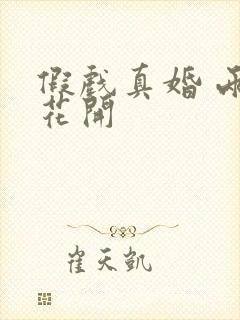 假戲真婚
花開
崔天凱